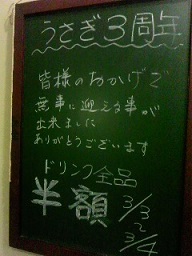 うさぎ3周年
皆様のおかげで
無事に迎える事が
出来ました
ありがとうございます
ドリンク全品
半額
3/3
~
3/4